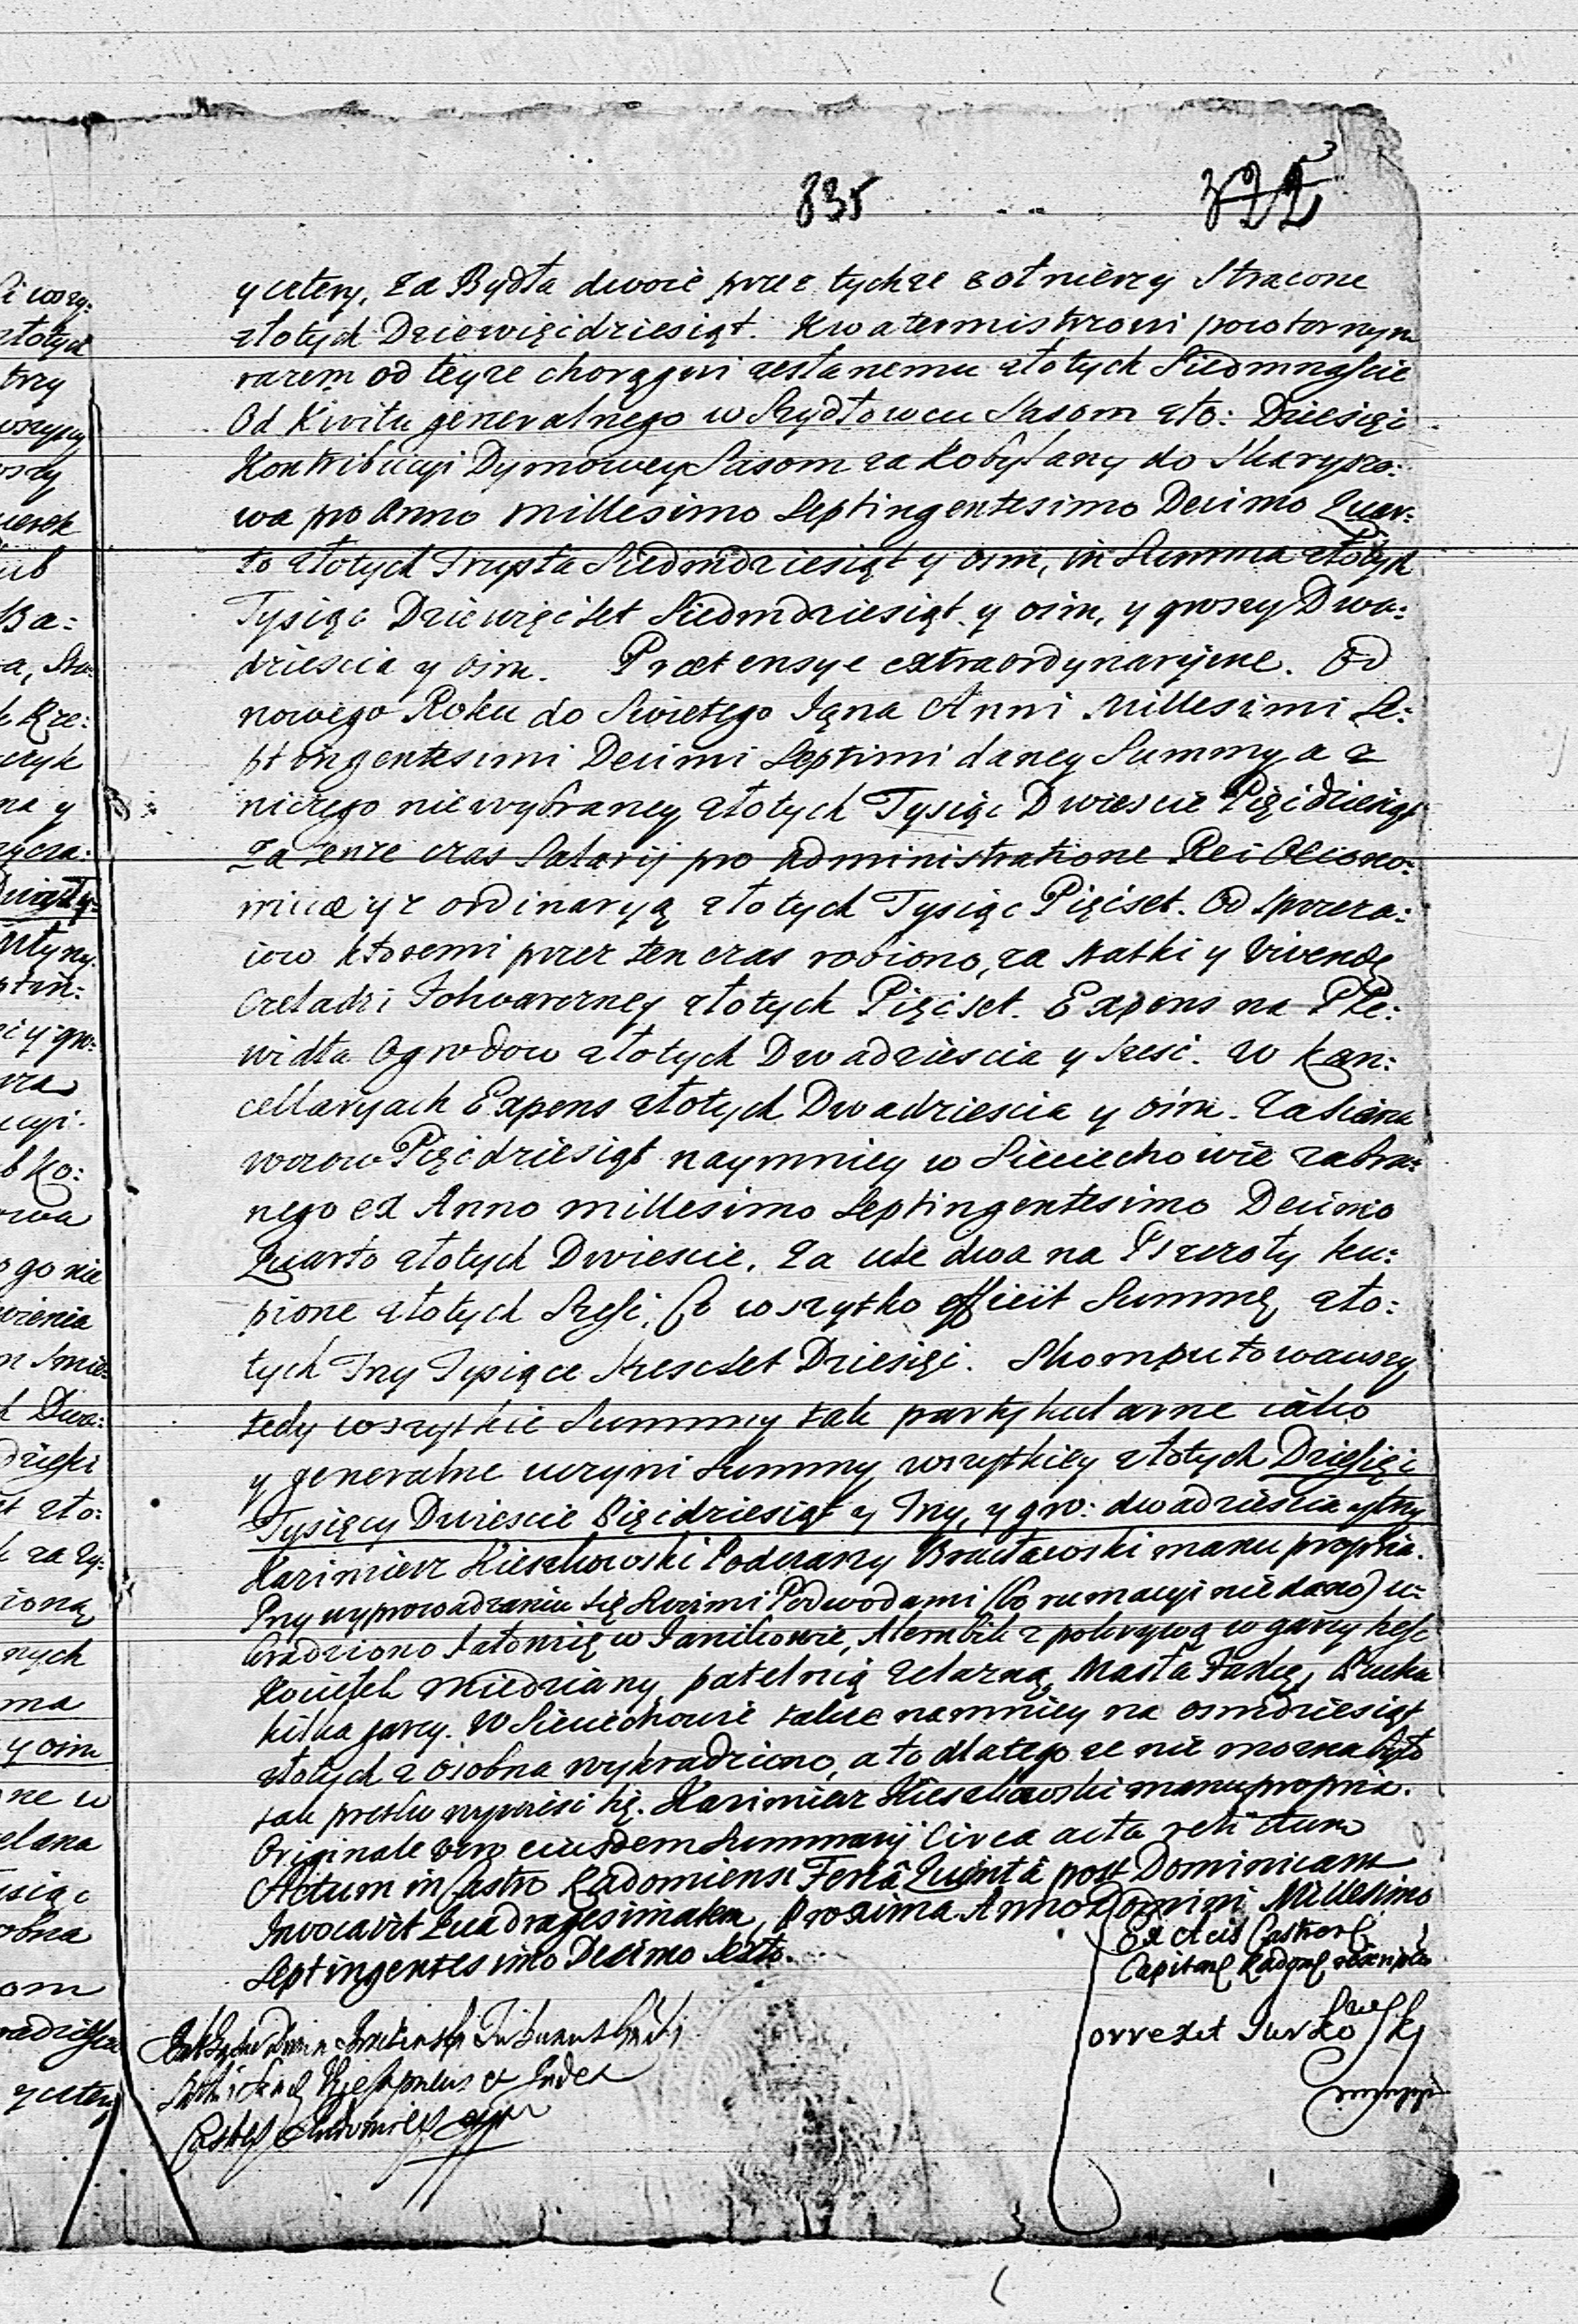 835
322
y cztery, za Bydła dwoie przez tychze zołnierzy Stracone
złotych Dziewięćdziesiąt. Kwatermistrzowi powtornym
razem od teyze chorągwi zesłanemu złotych Siedmnaście
Od Kwitu generalnego w Szydłowcu Sasom zło: Dziesięć
Kontribucyi Dymowey Sasom za Kobylany do Skarysze:
wa pro Anno millesimo Septingentesimo Decimo Quar:
to złotych Trzysta Siedmdziesiąt y osm, in Summa złotych
Tysiąc Dziewięćset Siedmdziesiąt y osm, y groszy Dwa:
dziescia y osm. Prætensye extraordynaryine. Od
nowego Roku do Swiętego Jana Anni Millesimi Se:
ptingentesimi Decimi Septimi daney Summy a z
niczego niewybraney złotych Tysiąc Dwiescie Pięćdziesiąt
Za tenze czas Salarij pro administratione Rei Oecono:
micæ y z ordinaryą złotych Tysiąc Pięćset. Od sprzeza:
iow ktoremi przez ten czas robiono, za Statki y Vivendę
Czeladzi Folwarczney złotych Pięćset. Expens na Ple:
widła Ogrodow złotych Dwadziescia y szesć. W kan:
cellaryach Expens złotych Dwadziescia y osm. Za Siana
wozow Pięćdziesiąt naymniey w Sieciechowie zabra:
nego ex Anno millesimo Septingentesimo Decimo
Quarto złotych Dwiescie. Za ule dwa na Pszczoły ku:
pione złotych Sześć. Co wszytko efficit Summę zło:
tych Trzy Tysiące Szescset Dziesięć. Skomputowawszy
tedy wszytkie Summy tak partykularne iako
y generalne uczyni Summy wszytkiey złotych Dziesięć
Tysięcy Dwiescie Pięćdziesiąt y Trzy, y gro: dwadziescia y trzy
Kazimierz Kieszkowski Podczaszy Bracławski manu propria.
Przy wyprowadzaniu się Swoimi Podwodami (bo rumacyi nie dano) u:
kradziono w Janikowie, Alembik z pokrywą w garcy sześć
Kociełek miedziany, patelnią zelazną, Masła Faskę,
kilka garcy. W Sieciechowie takze namniey na osmdziesiąt
złotych z osobna wykradziono, a to dlatego ze nie mozna było
tak prętko wynieść się. Kazimierz Kieszkowski manu propria.
Originale vero eiusdem Summarij circa acta relictum
Actum in Castro Radomiensi Feria Quinta post Dominicam
Invocavit Quadragesimalem, proxima Anno Domini Millesimo
Septingentesimo Decimo Sexto.
Ex Actis Castren
Capitan Radom
Correxit